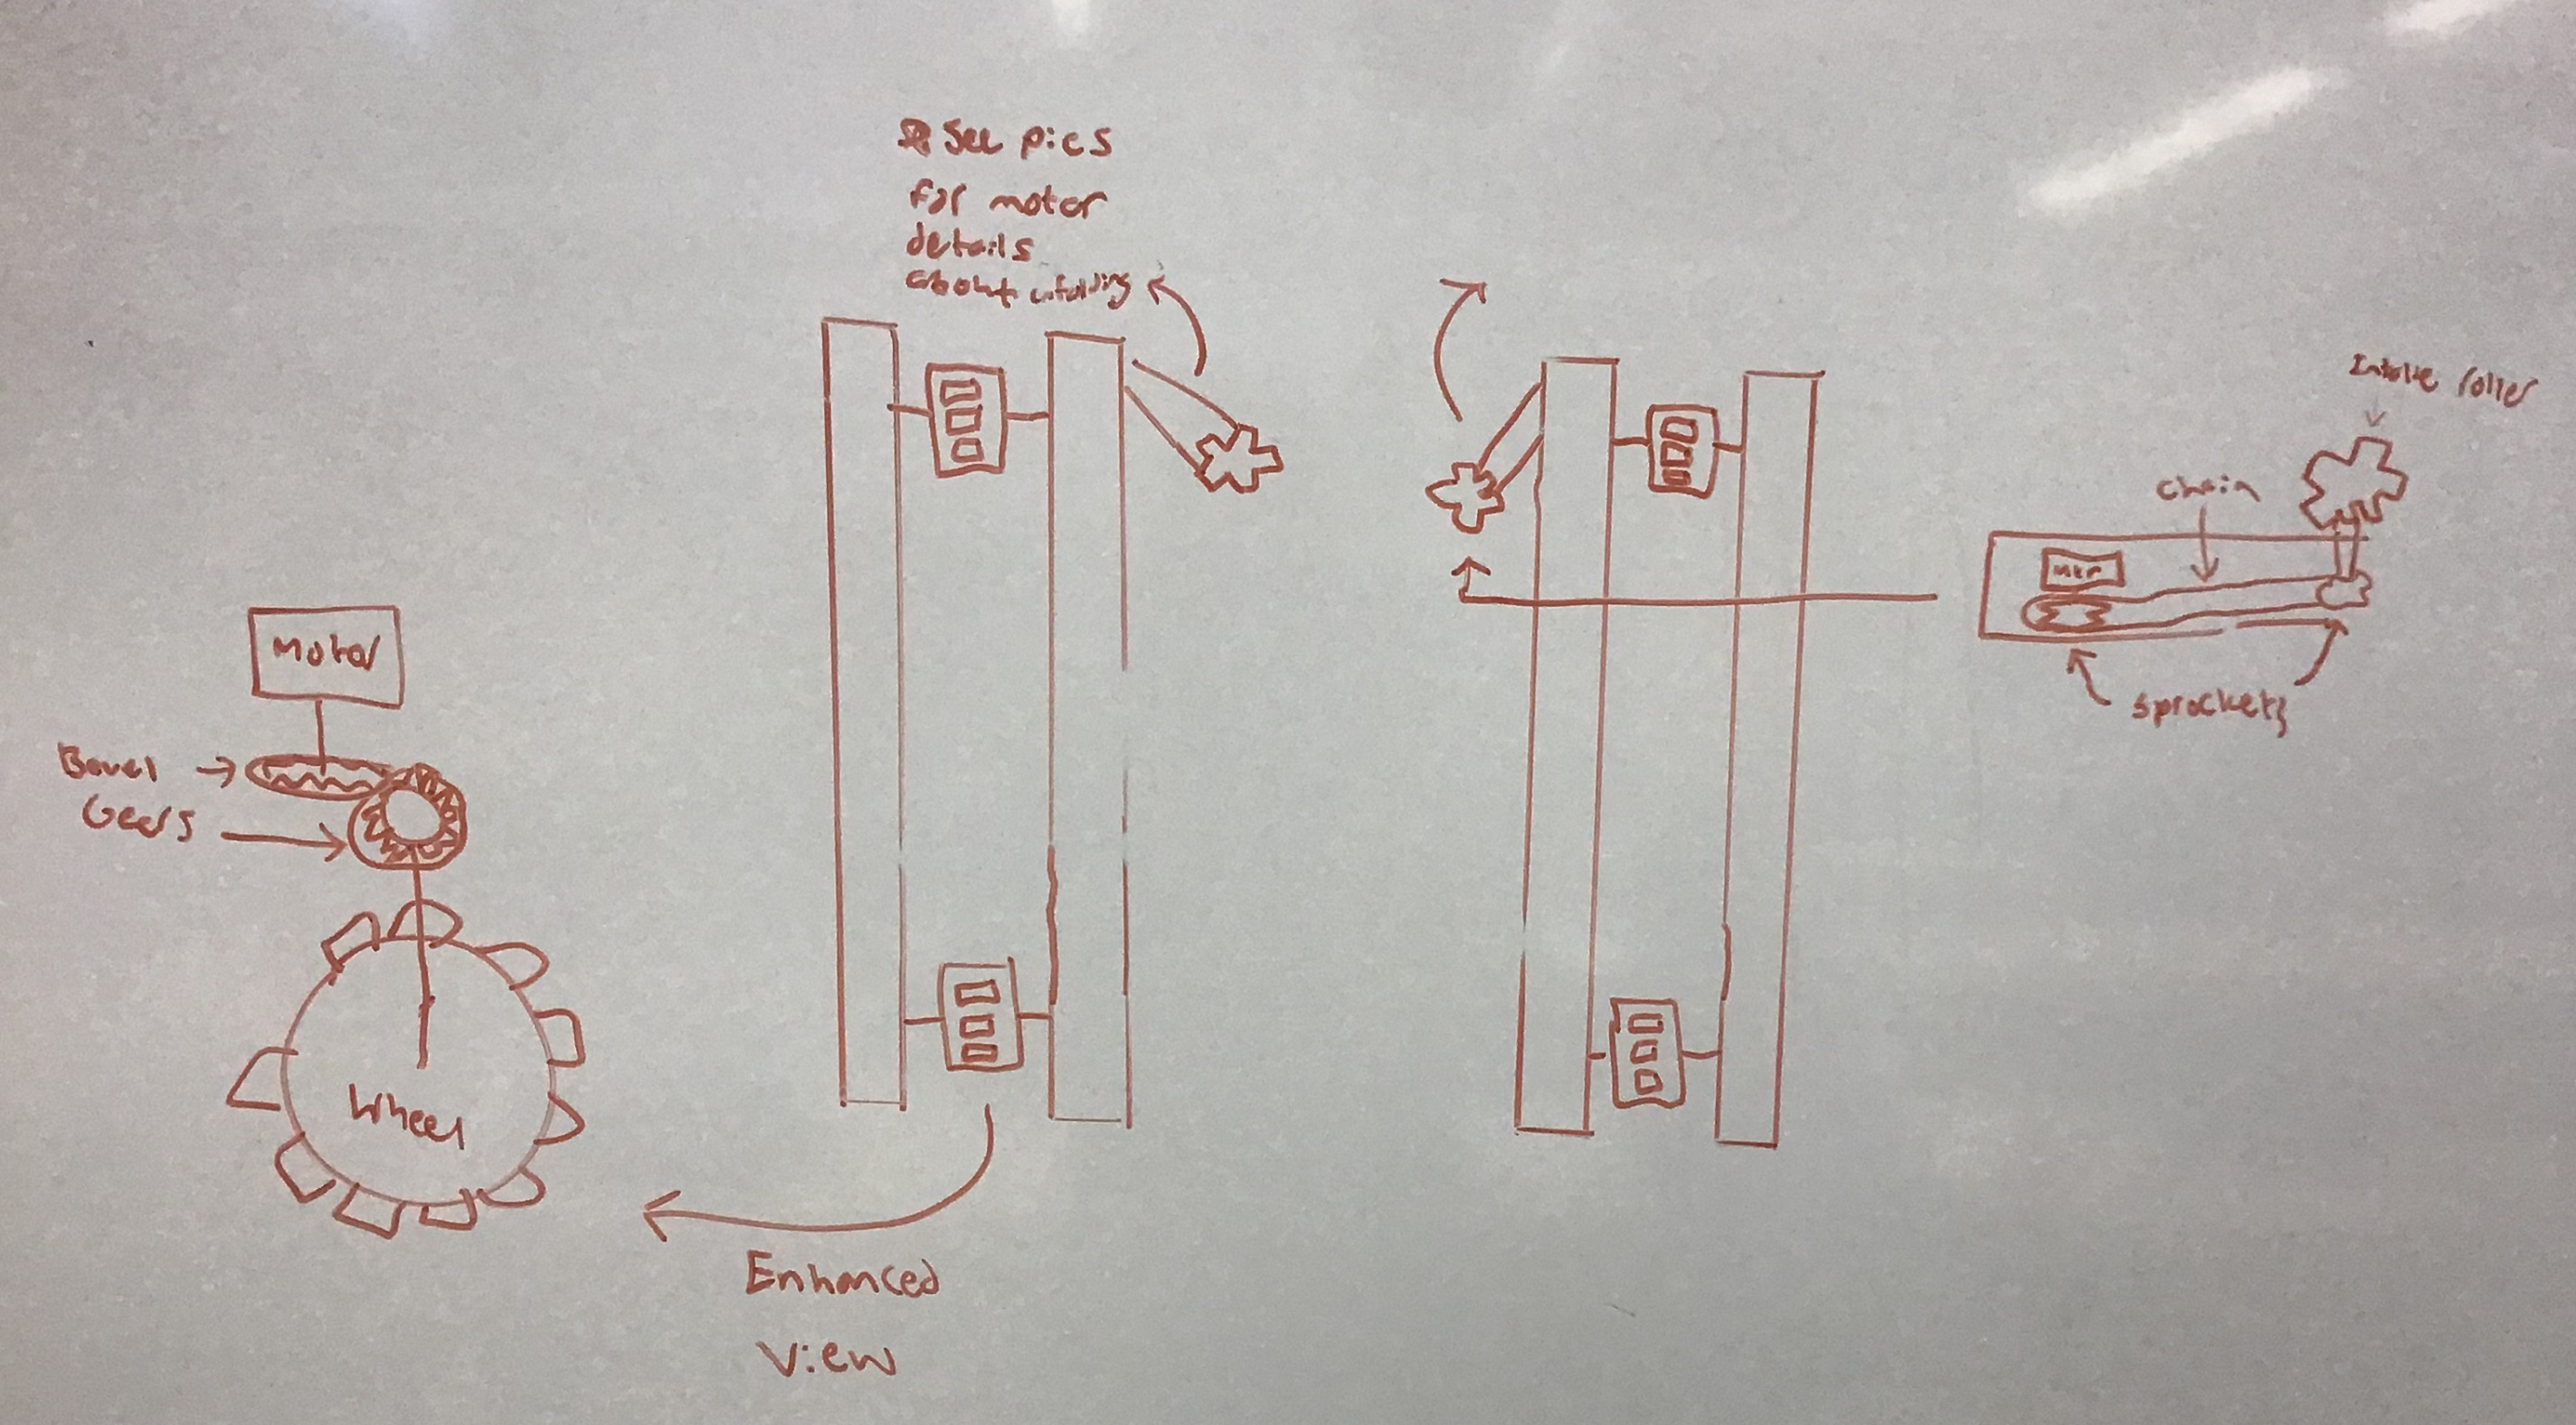 See pics
for motor
details
about unfolding
Motor
Bevel
Gears
Wheel
Enhanced
View
Intake roller
Chain
Sprockets